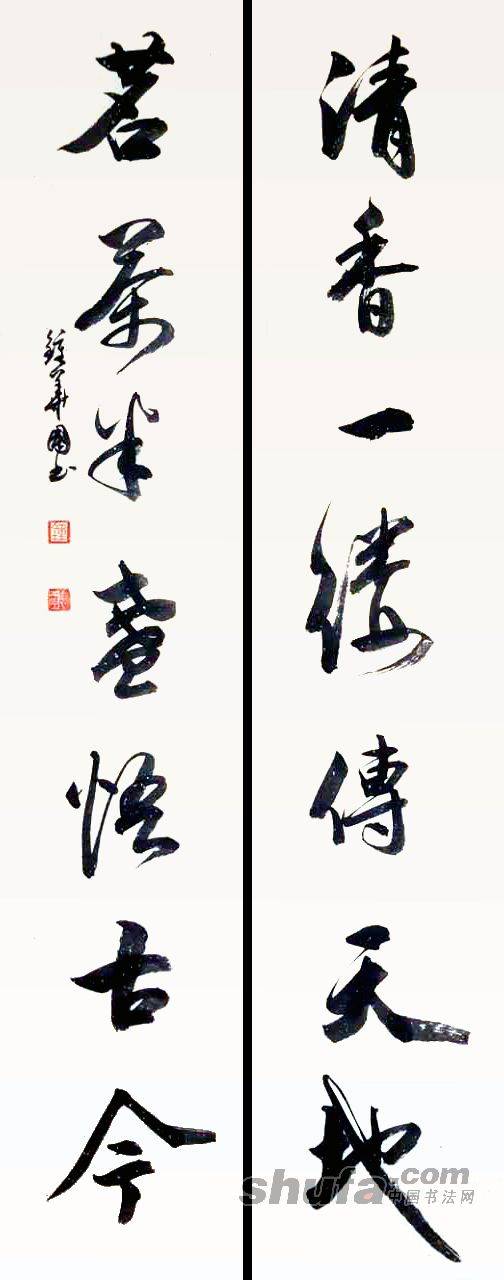 清香一縷傳天地
茗茶半盞悟古今
華國书
shufa.com
中国书法网